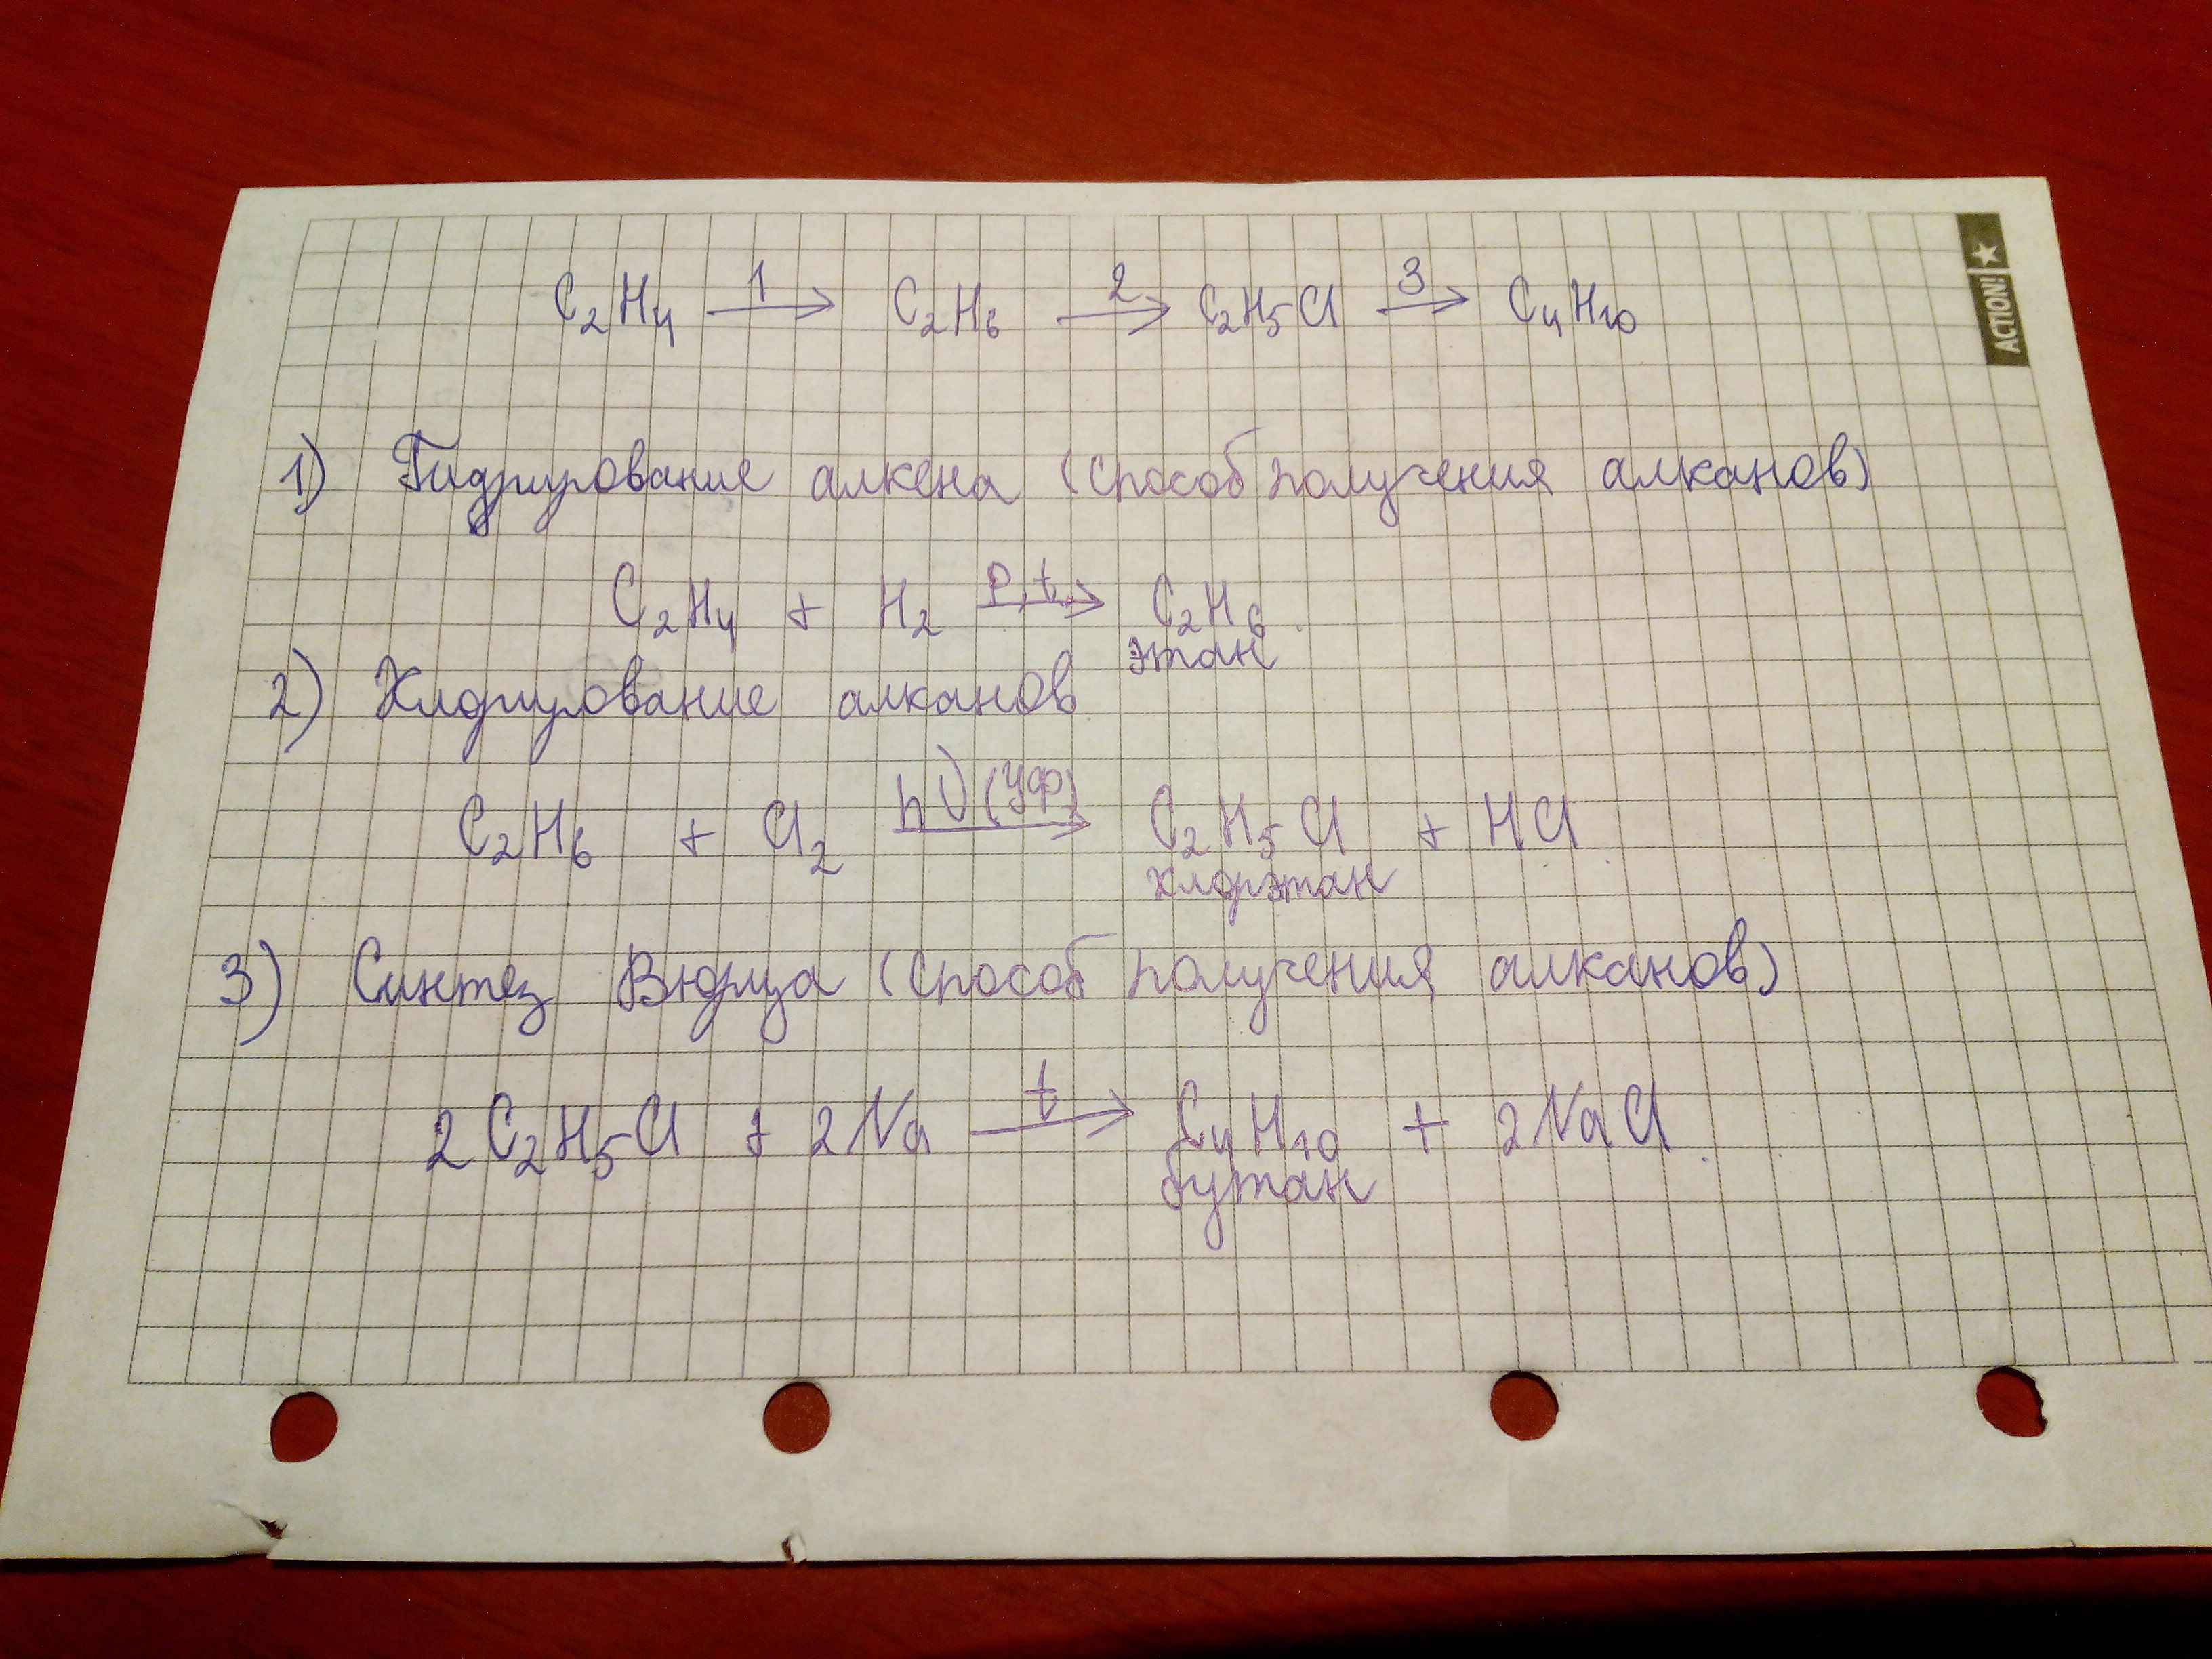 C₂H₄ —1→ C₂H₆ —2→ C₂H₅Cl —3→ C₄H₁₀
ACTION!
1) Гидрирование алкена (способ получения алканов)
C₂H₄ + H₂ —p, t→ C₂H₆.
этан
2) Хлорирование алканов
C₂H₆ + Cl₂ —hν (УФ)→ C₂H₅Cl + HCl.
хлорэтан
3) Синтез Вюрца (способ получения алканов)
2C₂H₅Cl + 2Na —t→ C₄H₁₀ + 2NaCl.
бутан